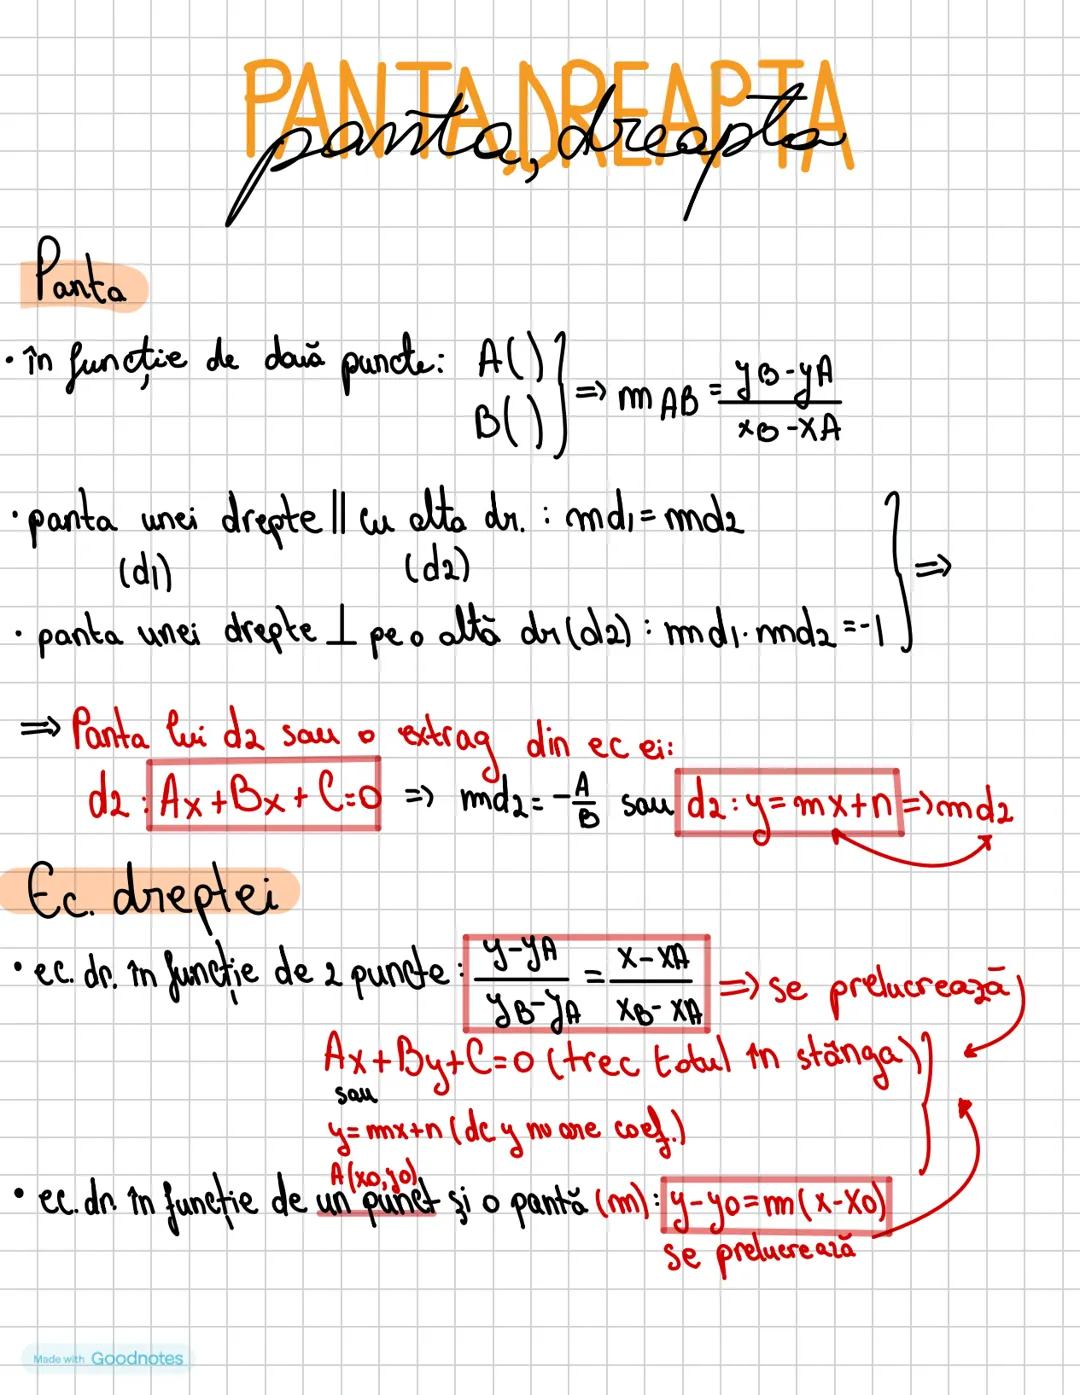 PANTA, DREAPTA
panta, dreapta
Panta
• în funcție de două puncte: A( ) B( ) } => mAB = yB-yA / xB-xA
• panta unei drepte || cu alta dr. : md1 = md2
(d1) (d2)
• panta unei drepte ⊥ pe o altă dr (d2) : md1 · md2 = -1 } =>
=> Panta lui d2 sau o extrag din ec ei:
d2 : Ax+Bx+C=0 => md2 = -A/B sau d2: y=mx+n => md2
Ec. dreptei
• ec. dr. în funcție de 2 puncte : y-yA / yB-yA = x-xA / xB-xA => se prelucrează
Ax+By+C=0 (trec totul în stânga)
sau
y=mx+n (dc y nu are coef.)
A(x0,y0)
• ec. dr. în funcție de un punct și o pantă (m) : y-y0=m(x-x0)
se prelucrează
Made with Goodnotes